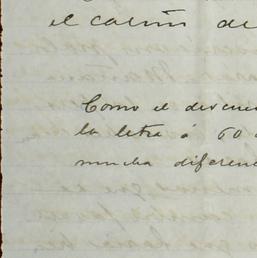 el calor de
Como el descuen
la letra á 60 d
mucha diferenc